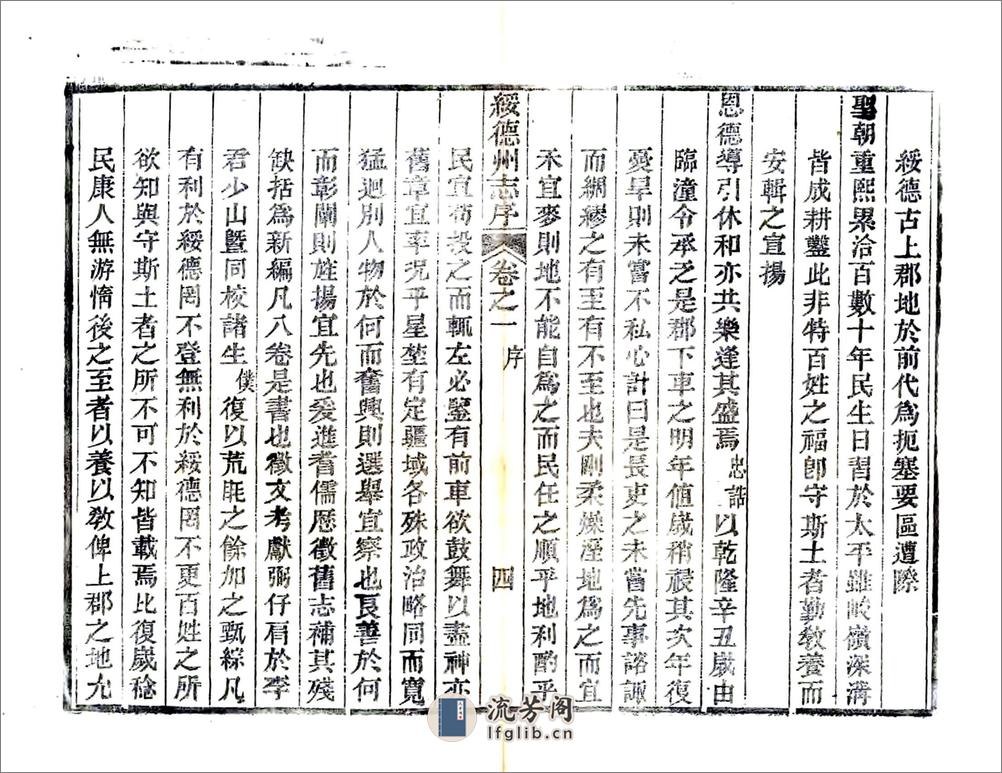 綏德古上郡地於前代爲扼塞要區遭際
聖朝重熙累洽百數十年民生日習於太平雖峻嶺深溝
皆成耕鑿此非特百姓之福卽守斯土者勤敎養而
安輯之宣揚
恩德導引休和亦共樂逢其盛焉忠誥以乾隆辛丑歲由
臨潼令承乏是郡下車之明年值歲稍祲其次年復
憂旱則未嘗不私心計曰是長吏之未嘗先事諮諏
而綢繆之有至有不至也夫剛柔燥溼地爲之而宜
禾宜麥則地不能自爲之而民任之順乎地利酌乎
綏德州志序
卷之一
序
四
民宜而投之而輒左必鑒有前車欲鼓舞以盡神亦
舊章宜率況乎星埜有定疆域各殊政治略同而寬
猛迥別人物於何而奮興則選舉宜察也良善於何
而彰闡則旌揚宜先也爰進耆儒歷徵舊志補其殘
缺括爲新編凡八卷是書也徵文考獻弼仔肩於李
君少山曁同校諸生僕復以荒眊之餘加之甄綜凡
有利於綏德罔不登無利於綏德罔不更百姓之所
欲知與守斯土者之所不可不知皆載焉比復歲稔
民康人無游惰後之至者以養以敎俾上郡之地尤
流芳阁
lfglib.cn